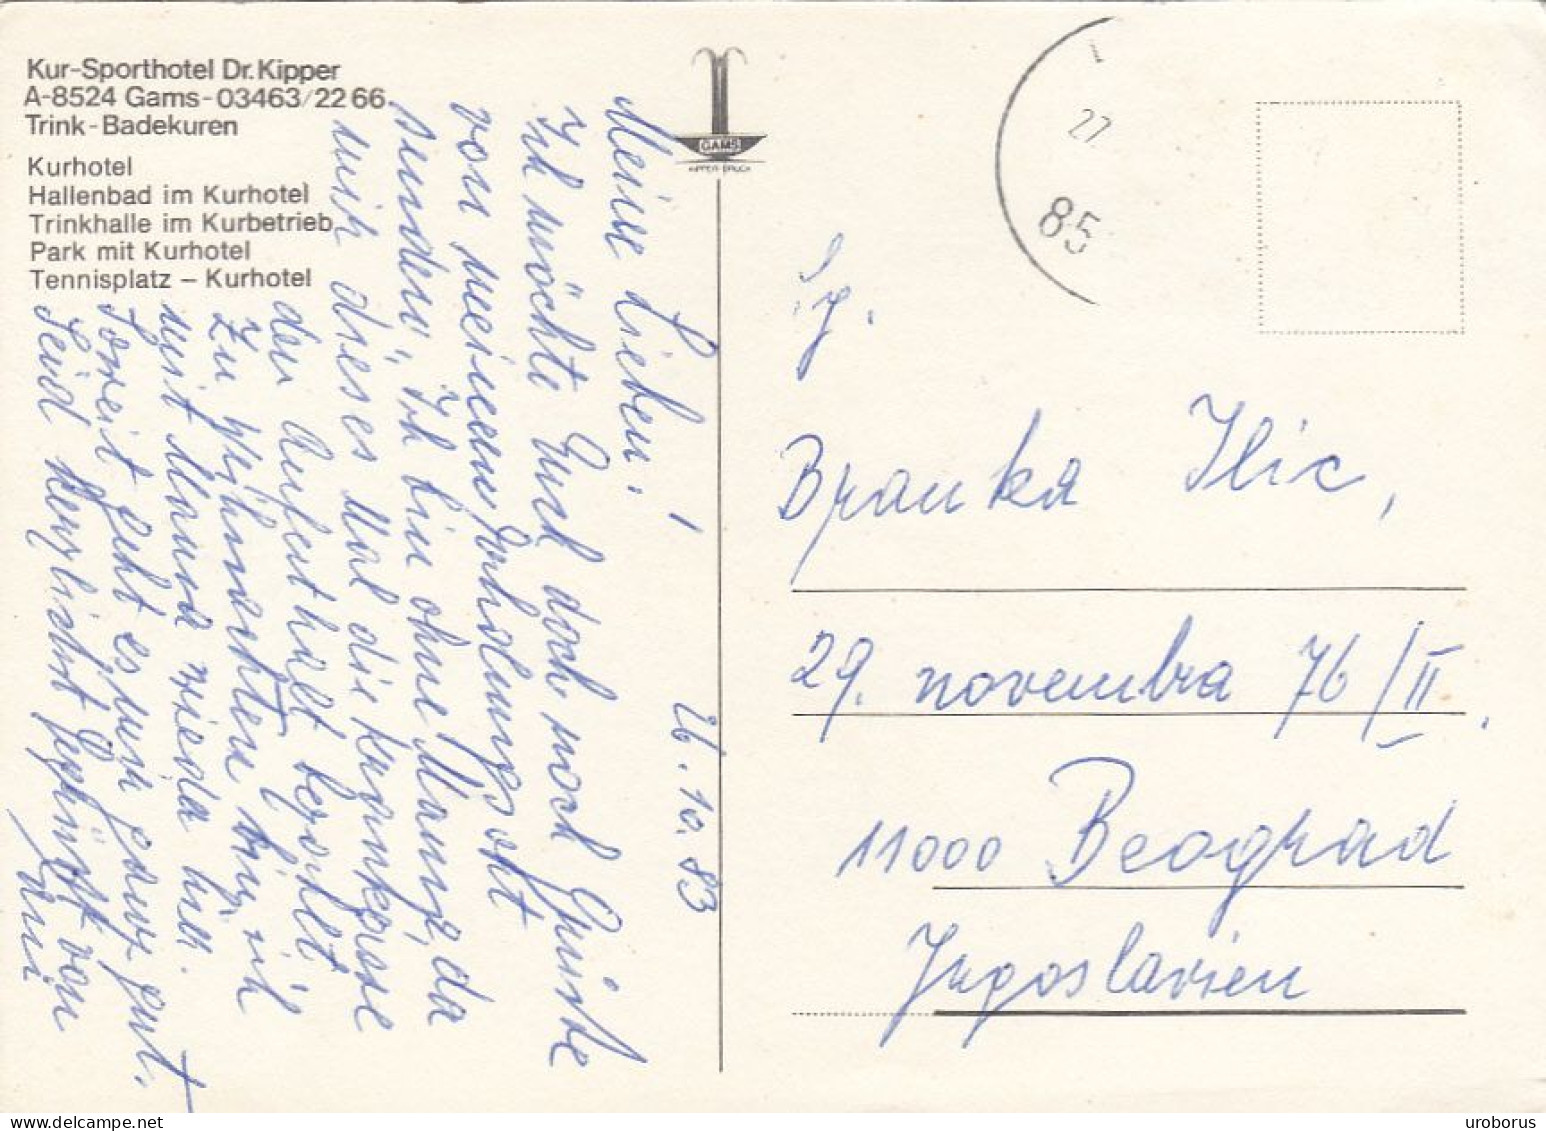 Kur-Sporthotel Dr.Kipper
A-8524 Gams-03463/22 66
Trink-Badekuren
Kurhotel
Hallenbad im Kurhotel
Trinkhalle im Kurbetrieb
Park mit Kurhotel
Tennisplatz – Kurhotel
GAMS
KIPPER-DRUCK
26. 10. 83
Meine Lieben!
Ich möchte Euch doch noch Grüße
von meinem Erholungsort
senden. Ich bin ohne Mama, da
mir dieses Mal die Krankenkasse
den Aufenthalt bezahlt.
Zu Weihnachten bin ich
mit Mama wieder hier.
Soweit geht es mir ganz gut.
Seid herzlichst gegrüßt von
27
85
Sg.
Branka Ilic,
29. novembra 76/II.
11000 Beograd
Jugoslavien
uroborus